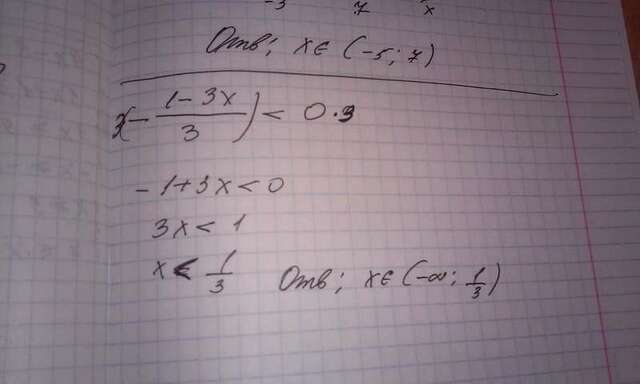 -3 7 x
Отв; x ∈ (-5; 7)
3(- (1-3x)/3) < 0·3
-1+3x<0
3x < 1
x < 1/3 Отв; x∈(-∞; 1/3)